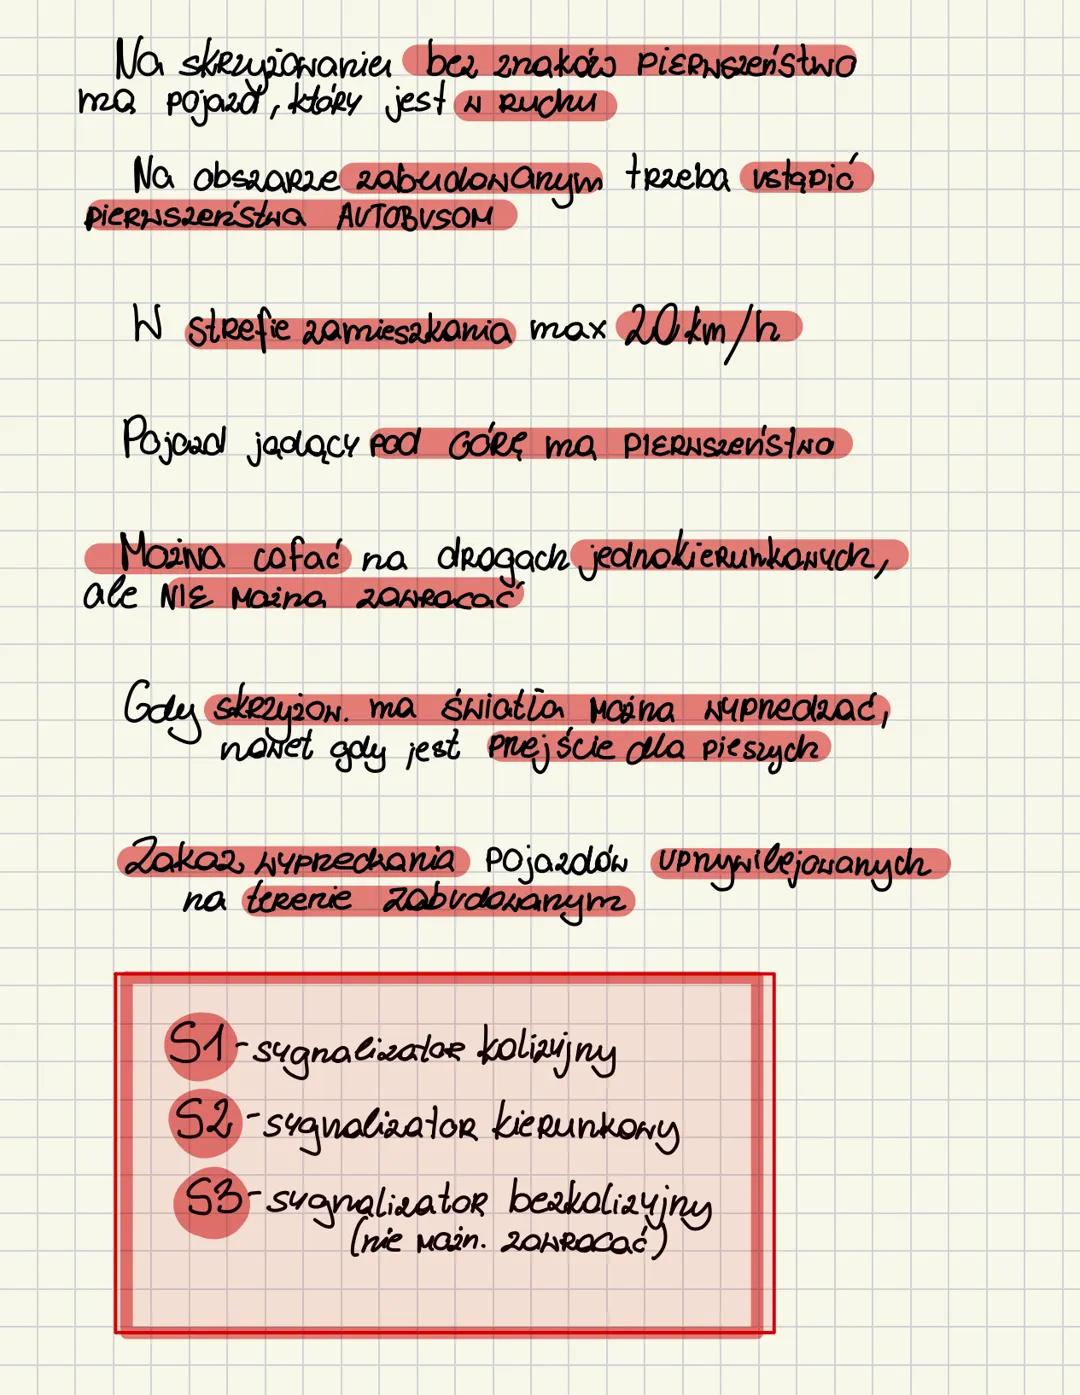 Na skrzyżowaniu bez znaków pierwszeństwo
ma pojazd, który jest w ruchu
Na obszarze zabudowanym trzeba ustąpić
pierwszeństwa AUTOBUSOM
W strefie zamieszkania max 20 km/h
Pojazd jadący pod GÓRĘ ma PIERWSZEŃSTWO
Można cofać na drogach jednokierunkowych,
ale NIE można zawracać
Gdy skrzyżow. ma światła można wyprzedzać,
nawet gdy jest przejście dla pieszych
Zakaz wyprzedzania pojazdów uprzywilejowanych
na terenie zabudowanym
S1 - sygnalizator kolizyjny
S2 - sygnalizator kierunkowy
S3 - sygnalizator bezkolizyjny
(nie możn. zawracać)